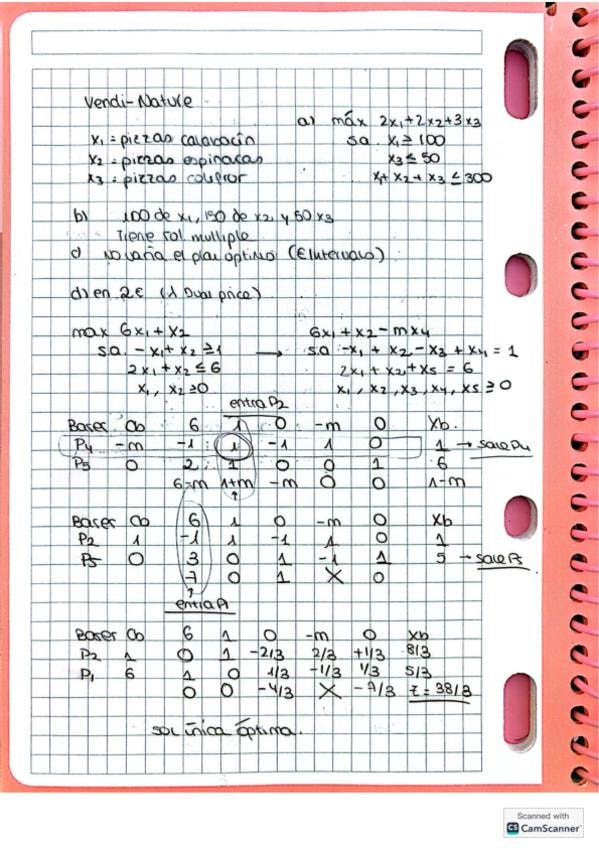 Vendi-Nature
a) máx 2x₁+2x₂+3x₃
x₁ = pizzas calabacín
s.a. x₁ ≥ 100
x₂ = pizzas espinacas
x₃ ≤ 50
x₃ = pizzas coliflor
x₁+x₂+x₃ ≤ 300
b) 100 de x₁, 150 de x₂, y 50 x₃
Tiene sol multiple
c) No varía el plan óptimo (∈ Intervalo)
d) en 2€ (λ Dual price)
max 6x₁+x₂
6x₁+x₂-mx₄
s.a. -x₁+x₂ ≥ 1 → s.a. -x₁+x₂-x₃+x₄ = 1
2x₁+x₂ ≤ 6
2x₁+x₂+x₅ = 6
x₁, x₂ ≥ 0
x₁, x₂, x₃, x₄, x₅ ≥ 0
entra P₂
Bases Cb 6 1 0 -m 0 Xb
P₄ -m -1 1 -1 1 0 1 → sale P₄
P₅ 0 2 1 0 0 1 6
6-m 1+m -m 0 0 1-m
Bases Cb 6 1 0 -m 0 Xb
P₂ 1 -1 1 -1 1 0 1
P₅ 0 3 0 1 -1 1 5 → sale P₅
7 0 1 X 0
entra P₁
Bases Cb 6 1 0 -m 0 Xb
P₂ 1 0 1 -2/3 2/3 +1/3 8/3
P₁ 6 1 0 1/3 -1/3 1/3 5/3
0 0 -4/3 X -7/3 Z = 38/3
sol única óptima.
Scanned with
CS CamScanner